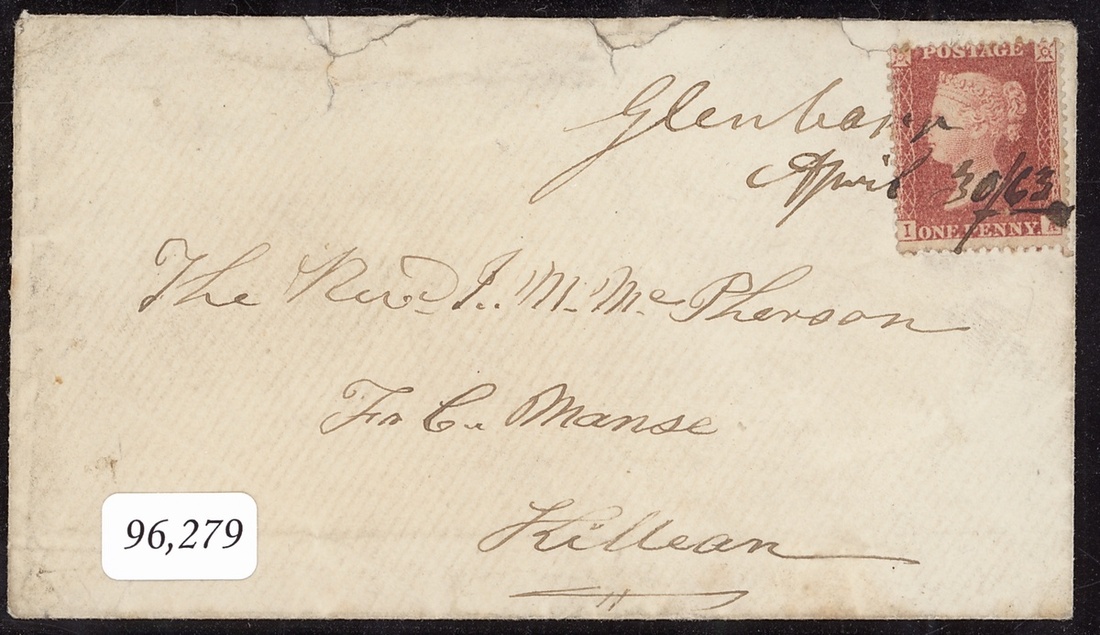 Glenbarr
April 30/63
POSTAGE
I ONE PENNY
The Revd. J. M. McPherson
Fr C. Manse
Killean
96,279